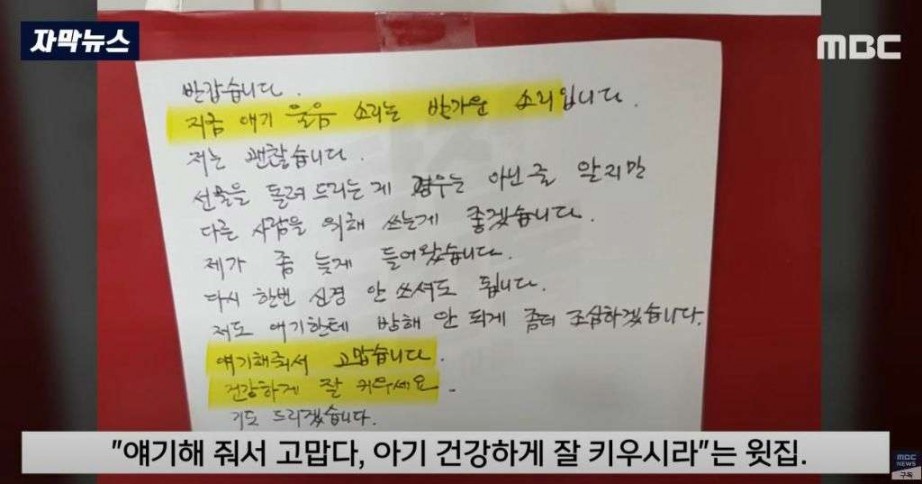 자막뉴스
MBC
반갑습니다.
지금 애기 울음 소리는 반가운 소리입니다.
저는 괜찮습니다.
선물을 돌려 드리는게 경우는 아닌줄 알지만
다른 사람을 위해 쓰는게 좋겠습니다.
제가 좀 늦게 들어왔습니다.
다시 한번 신경 안 쓰셔도 됩니다.
저도 애기한테 방해 안 되게 좀더 조심하겠습니다.
얘기해줘서 고맙습니다.
건강하게 잘 키우세요.
기도 드리겠습니다.
"얘기해 줘서 고맙다, 아기 건강하게 잘 키우시라"는 윗집.
MBC
NEWS
구독